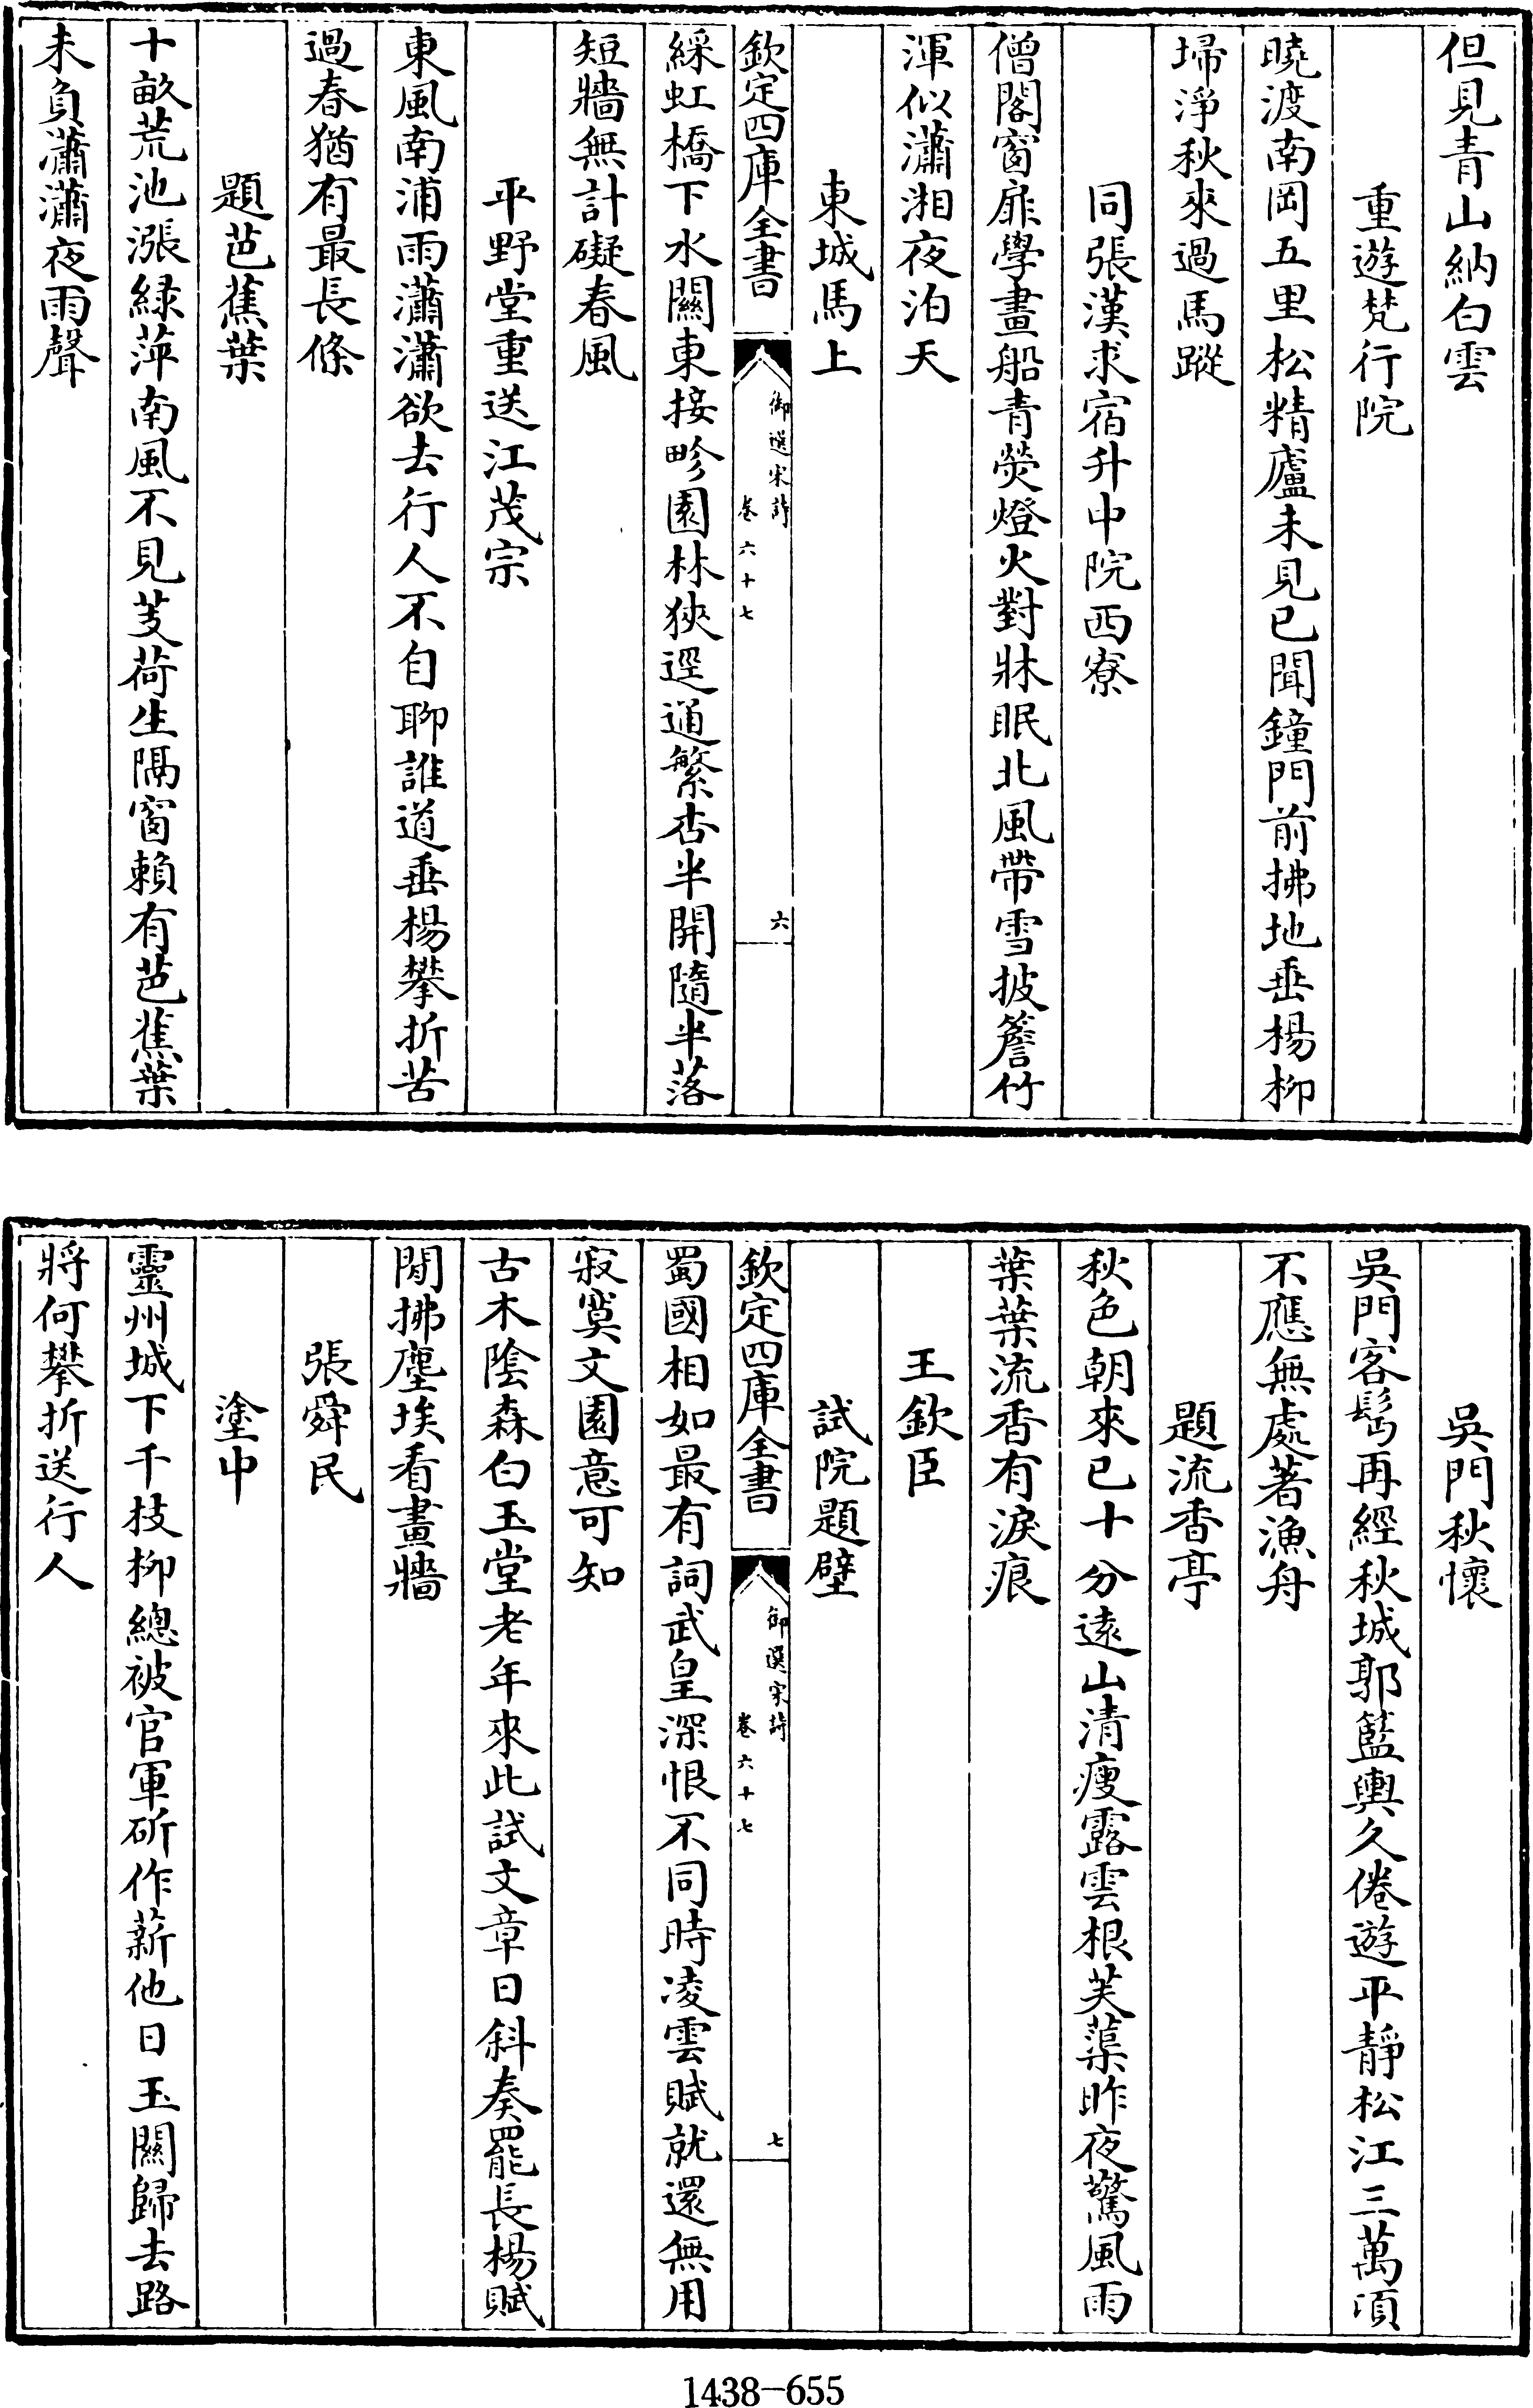 但見青山納白雲
重遊梵行院
曉渡南岡五里松精廬未見已聞鐘門前拂地垂楊柳
埽淨秋來過馬蹤
同張漢求宿升中院西寮
僧閣窗扉學畫船青熒燈火對牀眠北風帶雪披簷竹
渾似瀟湘夜泊天
東城馬上
欽定四庫全書
御選宋詩
卷六十七
六
綵虹橋下水關東接畛園林狹逕通繁杏半開隨半落
短牆無計礙春風
平野堂重送江茂宗
東風南浦雨瀟瀟欲去行人不自聊誰道垂楊攀折苦
過春猶有最長條
題芭蕉葉
十畝荒池漲綠萍南風不見芰荷生隔窗賴有芭蕉葉
未負瀟瀟夜雨聲
吳門秋懷
吳門客髩再經秋城郭籃輿久倦遊平靜松江三萬頃
不應無處著漁舟
題流香亭
秋色朝來已十分遠山清瘦露雲根芙蕖昨夜驚風雨
葉葉流香有淚痕
王欽臣
試院題壁
欽定四庫全書
御選宋詩
卷六十七
七
蜀國相如最有詞武皇深恨不同時凌雲賦就還無用
寂寞文園意可知
古木陰森白玉堂老年來此試文章日斜奏罷長楊賦
閒拂塵埃看畫牆
張舜民
塗中
靈州城下千枝柳總被官軍斫作薪他日玉關歸去路
將何攀折送行人
1438-655